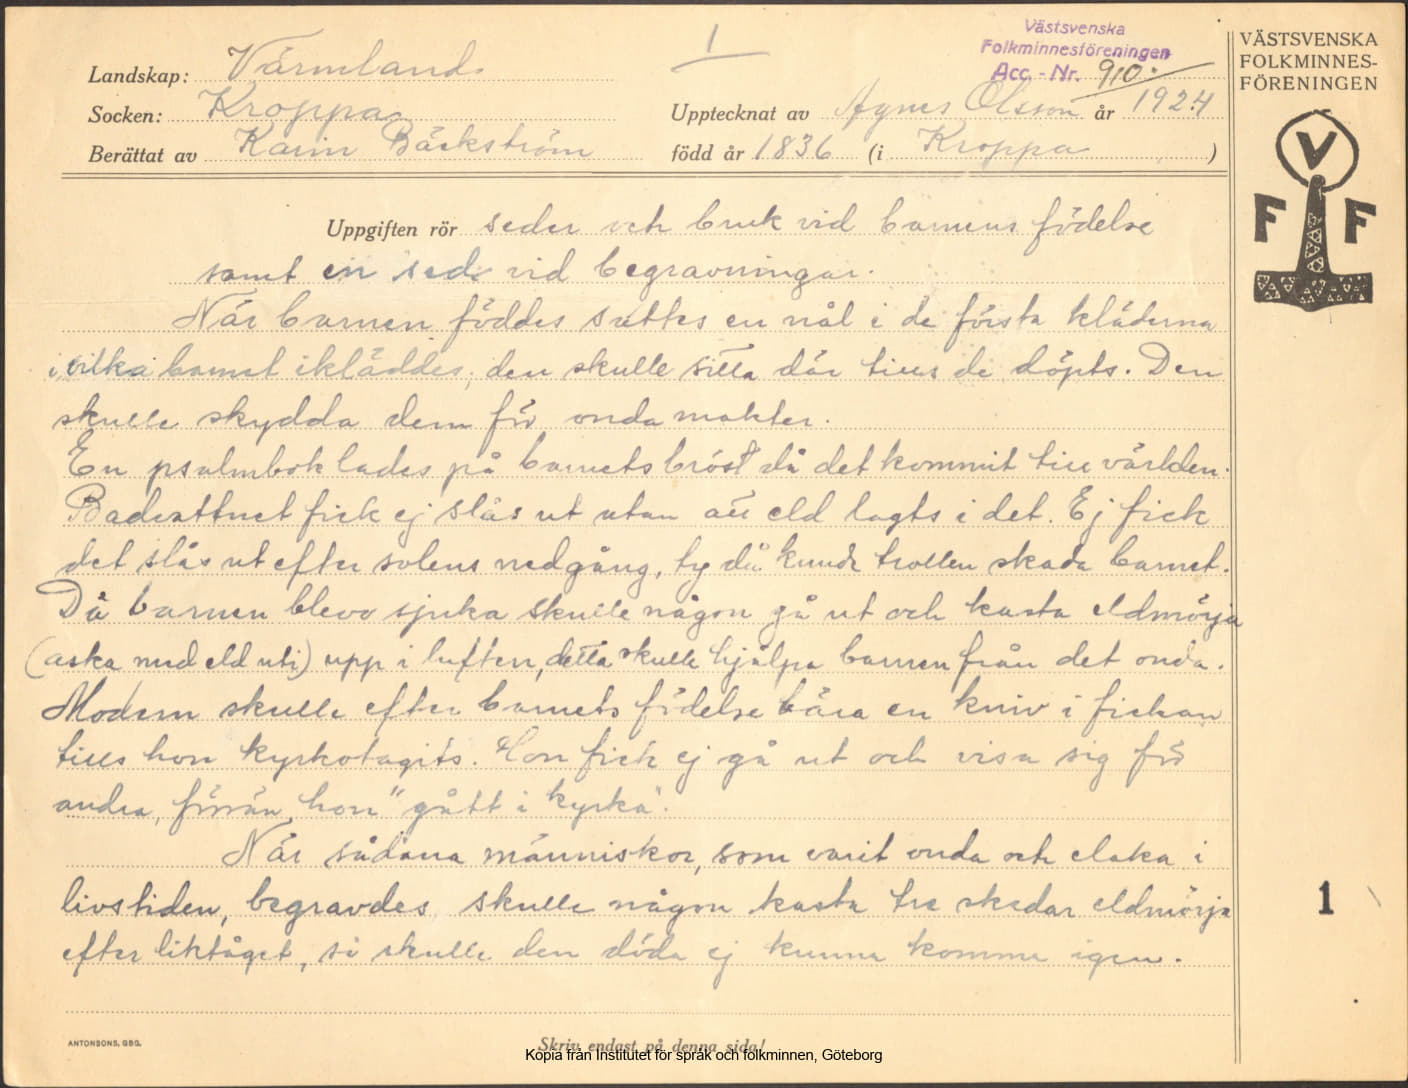 1
Västsvenska
Folkminnesföreningen
Acc.-Nr. 910.
Landskap: Värmland
Socken: Kroppa
Upptecknat av Agnes Olsson år 1924
Berättat av Karin Bäckström född år 1836 (i Kroppa)
VÄSTSVENSKA
FOLKMINNES-
FÖRENINGEN
V
F F
Uppgiften rör seder och bruk vid barnens födelse
samt en sed vid begravningar.
När barnen föddes sattes en nål i de första kläderna
i vilka barnet ikläddes, den skulle sitta där tills de döpts. Den
skulle skydda dem för onda makter.
En psalmbok lades på barnets bröst då det kommit till världen.
Badvattnet fick ej slås ut utan att eld lagts i det. Ej fick
det slås ut efter solens nedgång, ty då kunde trollen skada barnet.
Då barnen blevo sjuka skulle någon gå ut och kasta eldmörja
(aska med eld uti) upp i luften, detta skulle hjälpa barnen från det onda.
Modern skulle efter barnets födelse bära en kniv i fickan
tills hon kyrkotagits. Hon fick ej gå ut och visa sig för
andra, förrän hon "gått i kyrka".
När sådana människor, som varit onda och elaka i
livstiden, begravdes skulle någon kasta tre skedar eldmörja
efter liktåget, så skulle den döda ej kunna komma igen.
1
ANTONSONS, GBG.
Skriv endast på denna sida!
Kopia från Institutet för språk och folkminnen, Göteborg